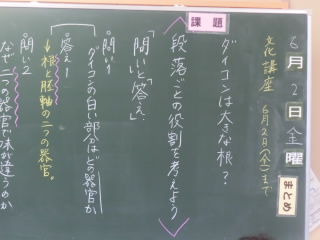 6月2日金曜
まとめ
文化講座 6月2日(金)まで
ダイコンは大きな根?
課題
段落ごとの役割を考えよう
「問いと答え」
問い1
ダイコンの白い部分はどの器官か
答え1
↓根と胚軸の二つの器官。
問い2
なぜ二つの器官で味が違うのか